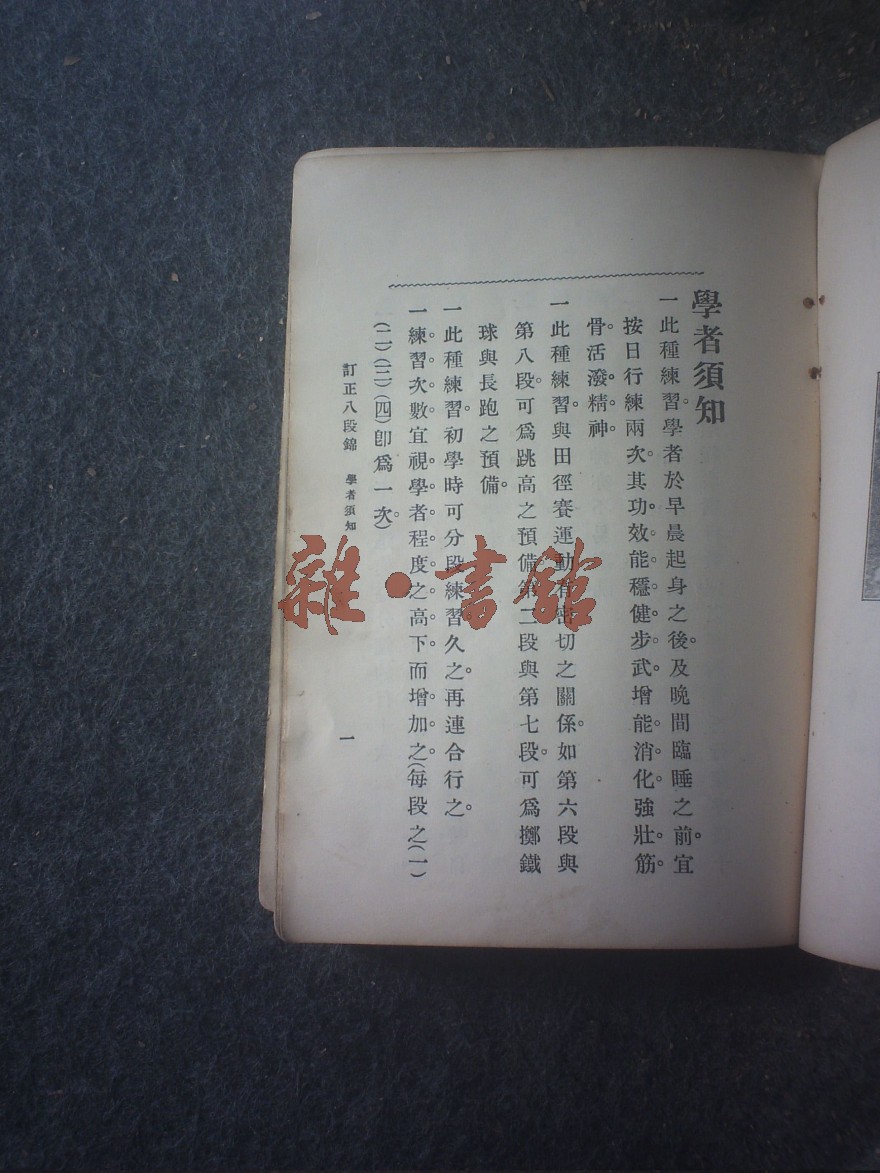 學者須知
一此種練習。學者於早晨起身之後。及晚間臨睡之前。宜
按日行練兩次。其功。效能穩健步武。增能消化。強壯筋。
骨。活潑。精神。
一此種練習。與田徑賽運動有密切之關係。如第六段與
第八段。可爲跳高之預備。第二段與第七段。可爲擲鐵
球與長跑之預備。
一此種練習。初學時可分段練習。久之。再連合行之。
一練習次數宜視。學者程度。之高下而增加之。(每段之(一)
(二)(三)(四)卽爲一次。)
訂正八段錦 學者須知
一
雜·書館